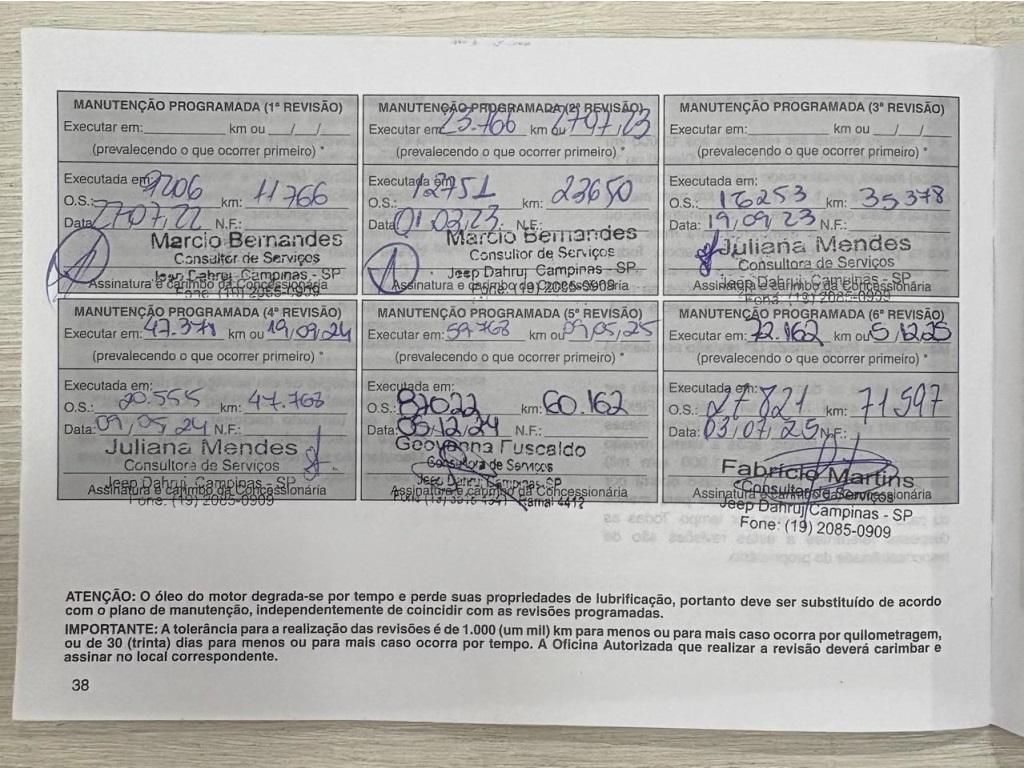 MANUTENÇÃO PROGRAMADA (1ª REVISÃO)
Executar em: km ou / /
(prevalecendo o que ocorrer primeiro) *
Executada em:
O.S.: 9206 km: 11766
Data: 27,07,22 N.F.:
Marcio Bernandes
Consultor de Serviços
Jeep Dahruj Campinas - SP
Assinatura e carimbo da Concessionária
Fone: (19) 2085-0909
MANUTENÇÃO PROGRAMADA (2ª REVISÃO)
Executar em: 23.766 km ou 27,07,23
(prevalecendo o que ocorrer primeiro) *
Executada em:
O.S.: 12751 km: 23650
Data: 01,03,23 N.F.:
Marcio Bernandes
Consultor de Serviços
Jeep Dahruj Campinas - SP
Assinatura e carimbo da Concessionária
Fone: (19) 2085-0909
MANUTENÇÃO PROGRAMADA (3ª REVISÃO)
Executar em: km ou / /
(prevalecendo o que ocorrer primeiro) *
Executada em:
O.S.: 16253 km: 35378
Data: 19,09,23 N.F.:
Juliana Mendes
Consultora de Serviços
Jeep Dahruj Campinas - SP
Assinatura e carimbo da Concessionária
Fone: (19) 2085-0909
MANUTENÇÃO PROGRAMADA (4ª REVISÃO)
Executar em: 47.378 km ou 19,09,24
(prevalecendo o que ocorrer primeiro) *
Executada em:
O.S.: 20.555 km: 47.768
Data: 09,05,24 N.F.:
Juliana Mendes
Consultora de Serviços
Jeep Dahruj Campinas - SP
Assinatura e carimbo da Concessionária
Fone: (19) 2085-0909
MANUTENÇÃO PROGRAMADA (5ª REVISÃO)
Executar em: 59.768 km ou 09,05,25
(prevalecendo o que ocorrer primeiro) *
Executada em:
O.S.: km: 60.162
Data: 05,12,24 N.F.:
Geovanna Fuscaldo
Consultora de Serviços
Jeep Dahruj Campinas-SP
Assinatura e carimbo da Concessionária
Ramal 4412
MANUTENÇÃO PROGRAMADA (6ª REVISÃO)
Executar em: 72.162 km ou 5,12,25
(prevalecendo o que ocorrer primeiro) *
Executada em:
O.S.: 27821 km: 71597
Data: 03,07,25 N.F.:
Fabricio Martins
Consultor de Serviços
Assinatura e carimbo da Concessionária
Jeep Dahruj Campinas - SP
Fone: (19) 2085-0909
ATENÇÃO: O óleo do motor degrada-se por tempo e perde suas propriedades de lubrificação, portanto deve ser substituído de acordo
com o plano de manutenção, independentemente de coincidir com as revisões programadas.
IMPORTANTE: A tolerância para a realização das revisões é de 1.000 (um mil) km para menos ou para mais caso ocorra por quilometragem,
ou de 30 (trinta) dias para menos ou para mais caso ocorra por tempo. A Oficina Autorizada que realizar a revisão deverá carimbar e
assinar no local correspondente.
38